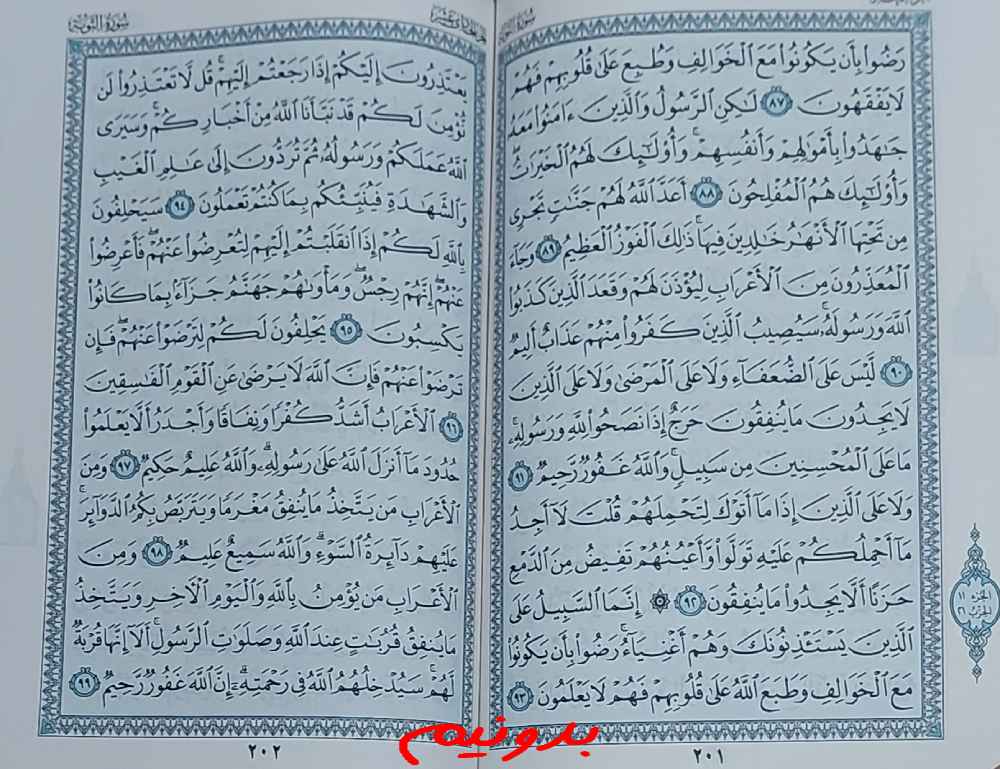 سورة التوبة
رَضُوا۟ بِأَن يَكُونُوا۟ مَعَ ٱلْخَوَالِفِ وَطُبِعَ عَلَىٰ قُلُوبِهِمْ فَهُمْ
لَا يَفْقَهُونَ ٨٧ لَٰكِنِ ٱلرَّسُولُ وَٱلَّذِينَ ءَامَنُوا۟ مَعَهُۥ
جَٰهَدُوا۟ بِأَمْوَٰلِهِمْ وَأَنفُسِهِمْ ۚ وَأُو۟لَٰٓئِكَ لَهُمُ ٱلْخَيْرَٰتُ ۖ
وَأُو۟لَٰٓئِكَ هُمُ ٱلْمُفْلِحُونَ ٨٨ أَعَدَّ ٱللَّهُ لَهُمْ جَنَّٰتٍ تَجْرِى
مِن تَحْتِهَا ٱلْأَنْهَٰرُ خَٰلِدِينَ فِيهَا ۚ ذَٰلِكَ ٱلْفَوْزُ ٱلْعَظِيمُ ٨٩ وَجَآءَ
ٱلْمُعَذِّرُونَ مِنَ ٱلْأَعْرَابِ لِيُؤْذَنَ لَهُمْ وَقَعَدَ ٱلَّذِينَ كَذَبُوا۟
ٱللَّهَ وَرَسُولَهُۥ ۚ سَيُصِيبُ ٱلَّذِينَ كَفَرُوا۟ مِنْهُمْ عَذَابٌ أَلِيمٌ
٩٠ لَّيْسَ عَلَى ٱلضُّعَفَآءِ وَلَا عَلَى ٱلْمَرْضَىٰ وَلَا عَلَى ٱلَّذِينَ
لَا يَجِدُونَ مَا يُنفِقُونَ حَرَجٌ إِذَا نَصَحُوا۟ لِلَّهِ وَرَسُولِهِۦ ۚ
مَا عَلَى ٱلْمُحْسِنِينَ مِن سَبِيلٍ ۚ وَٱللَّهُ غَفُورٌ رَّحِيمٌ ٩١
وَلَا عَلَى ٱلَّذِينَ إِذَا مَآ أَتَوْكَ لِتَحْمِلَهُمْ قُلْتَ لَآ أَجِدُ
مَآ أَحْمِلُكُمْ عَلَيْهِ تَوَلَّوا۟ وَّأَعْيُنُهُمْ تَفِيضُ مِنَ ٱلدَّمْعِ
حَزَنًا أَلَّا يَجِدُوا۟ مَا يُنفِقُونَ ٩٢ ۞ إِنَّمَا ٱلسَّبِيلُ عَلَى
ٱلَّذِينَ يَسْتَـْٔذِنُونَكَ وَهُمْ أَغْنِيَآءُ ۚ رَضُوا۟ بِأَن يَكُونُوا۟
مَعَ ٱلْخَوَالِفِ وَطَبَعَ ٱللَّهُ عَلَىٰ قُلُوبِهِمْ فَهُمْ لَا يَعْلَمُونَ ٩٣
الجزء ١١
الحزب ٢١
٢٠١
سورة التوبة
يَعْتَذِرُونَ إِلَيْكُمْ إِذَا رَجَعْتُمْ إِلَيْهِمْ ۚ قُل لَّا تَعْتَذِرُوا۟ لَن
نُّؤْمِنَ لَكُمْ قَدْ نَبَّأَنَا ٱللَّهُ مِنْ أَخْبَارِكُمْ ۚ وَسَيَرَى
ٱللَّهُ عَمَلَكُمْ وَرَسُولُهُۥ ثُمَّ تُرَدُّونَ إِلَىٰ عَٰلِمِ ٱلْغَيْبِ
وَٱلشَّهَٰدَةِ فَيُنَبِّئُكُم بِمَا كُنتُمْ تَعْمَلُونَ ٩٤ سَيَحْلِفُونَ
بِٱللَّهِ لَكُمْ إِذَا ٱنقَلَبْتُمْ إِلَيْهِمْ لِتُعْرِضُوا۟ عَنْهُمْ ۖ فَأَعْرِضُوا۟
عَنْهُمْ ۖ إِنَّهُمْ رِجْسٌ ۖ وَمَأْوَىٰهُمْ جَهَنَّمُ جَزَآءًۢ بِمَا كَانُوا۟
يَكْسِبُونَ ٩٥ يَحْلِفُونَ لَكُمْ لِتَرْضَوْا۟ عَنْهُمْ ۖ فَإِن
تَرْضَوْا۟ عَنْهُمْ فَإِنَّ ٱللَّهَ لَا يَرْضَىٰ عَنِ ٱلْقَوْمِ ٱلْفَٰسِقِينَ
٩٦ ٱلْأَعْرَابُ أَشَدُّ كُفْرًا وَنِفَاقًا وَأَجْدَرُ أَلَّا يَعْلَمُوا۟
حُدُودَ مَآ أَنزَلَ ٱللَّهُ عَلَىٰ رَسُولِهِۦ ۗ وَٱللَّهُ عَلِيمٌ حَكِيمٌ ٩٧ وَمِنَ
ٱلْأَعْرَابِ مَن يَتَّخِذُ مَا يُنفِقُ مَغْرَمًا وَيَتَرَبَّصُ بِكُمُ ٱلدَّوَآئِرَ ۚ
عَلَيْهِمْ دَآئِرَةُ ٱلسَّوْءِ ۗ وَٱللَّهُ سَمِيعٌ عَلِيمٌ ٩٨ وَمِنَ
ٱلْأَعْرَابِ مَن يُؤْمِنُ بِٱللَّهِ وَٱلْيَوْمِ ٱلْءَاخِرِ وَيَتَّخِذُ
مَا يُنفِقُ قُرُبَٰتٍ عِندَ ٱللَّهِ وَصَلَوَٰتِ ٱلرَّسُولِ ۚ أَلَآ إِنَّهَا قُرْبَةٌ
لَّهُمْ ۚ سَيُدْخِلُهُمُ ٱللَّهُ فِى رَحْمَتِهِۦٓ ۗ إِنَّ ٱللَّهَ غَفُورٌ رَّحِيمٌ ٩٩
٢٠٢
بدونیم